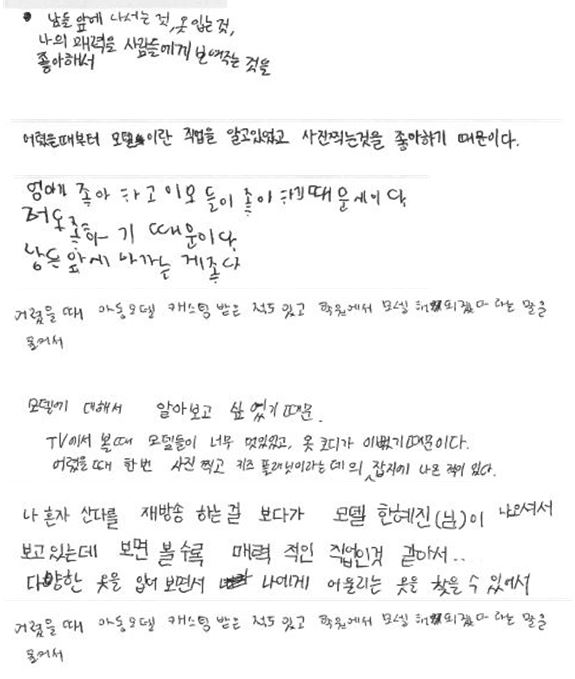 • 남들 앞에 나서는 것, 옷 입는 것,
나의 매력을 사람들에게 보여주는 것을
좋아해서
어렸을때부터 모델이란 직업을 알고있었고 사진찍는것을 좋아하기 때문이다.
엄마에 좋아 하고 이모 들이 좋아 하기때문에이다
저도 좋아 기 때문이다
남든 앞에 나가는 게좋다
어렸을 때 아동모델 캐스팅 받은 적도 있고 학원에서 모델 해도 되겠다 라는 말을
들어서
모델에 대해서 알아보고 싶었기 때문.
TV에서 볼때 모델들이 너무 멋있었고, 옷 코디가 이뻤기때문이다.
어렸을때 한번 사진 찍고 키즈 플래닛이라는데의 잡지에 나온 적이 있다.
나 혼자 산다를 재방송 하는걸 보다가 모델 한혜진(님)이 나오셔서
보고있는데 보면 볼수록 매력 적인 직업인것 같아서..
다양한 옷을 입어 보면서 나에게 어울리는 옷을 찾을 수 있어서
어렸을 때 아동모델 캐스팅 받은 적도 있고 학원에서 모델 해도 되겠다 라는 말을
들어서